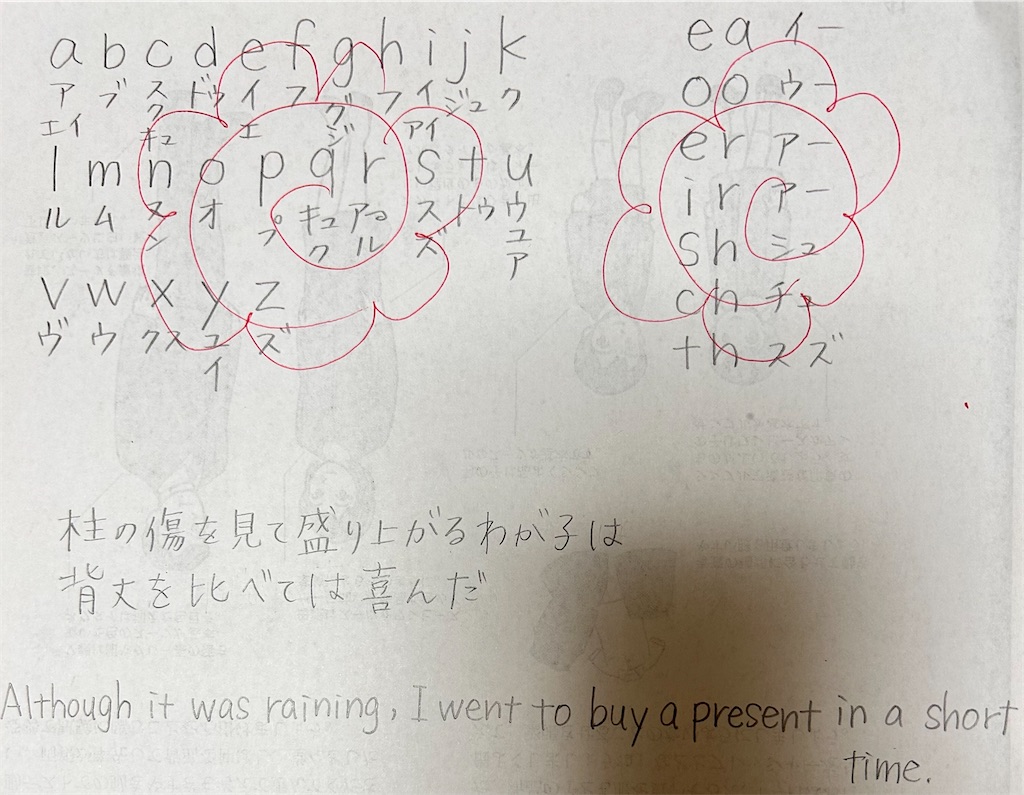 a b c d e f g h i j k
ア ブ ス ドゥ イ フ グ フ イ ジュ ク
エイ ク エ ジ アイ
キュ
l m n o p q r s t u
ル ム ヌ オ プ キュ アー ス トゥ ウ
ン ク ル ズ ユ
ア
v w x y z
ヴ ウ クス ユ ズ
イ
ea イー
oo ウー
er アー
ir アー
sh シュ
ch チュ
th ス ズ
柱の傷を見て盛り上がるわが子は
背丈を比べては喜んだ
Although it was raining, I went to buy a present in a short
time.